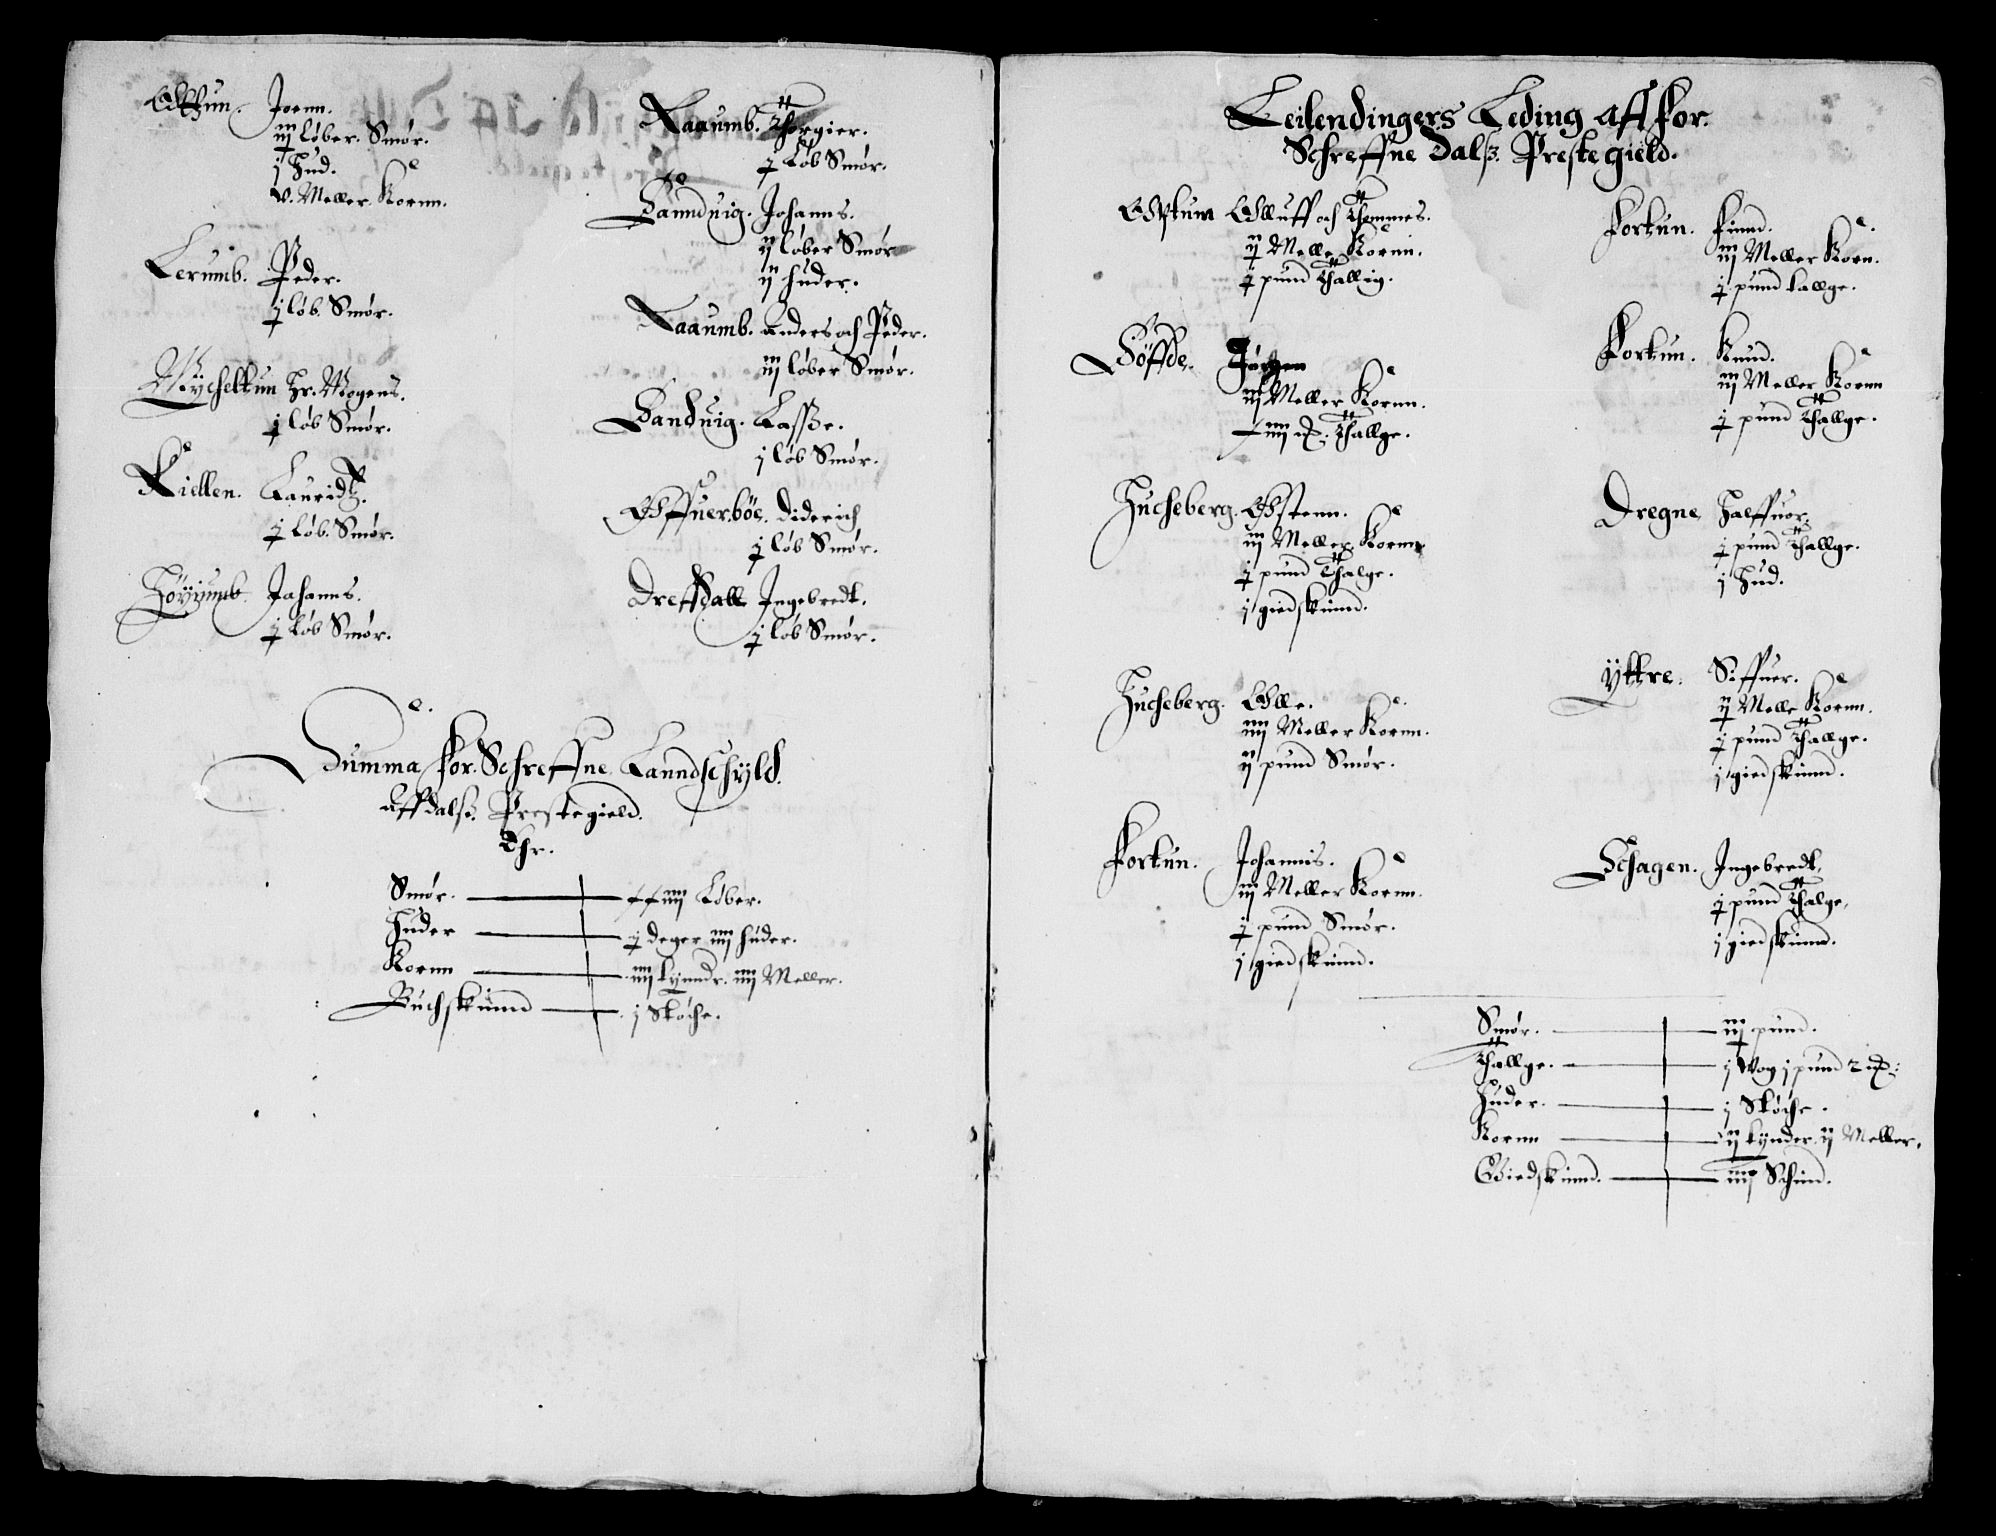 Joenn.
iij løber. Smør.
j Hud.
v. Meller. Kornn.
Lerumb. Peder.
j løb. Smør.
Mycheltun Hr. Mogens.
j løb Smør.
Kiellen. Lauridtz.
j Løb. Smør.
Johanns.
j Løb Smør.
Raaumb. Thorgier.
j Løb Smør.
Sanduig. Johanns.
ij løber Smør
ij huder.
Raaumb. Anders och Peder.
iij løber Smør.
Sanduig. Lassße.
j løb Smør.
Offuerböe. Diderich
j løb Smør.
Dreffdall Ingebredt.
j løb Smør.
Summa for. Schreffne Lanndschyld.
Aff dalß. Prestegield.
Ehr.
Smør. xxiiij Løber.
Huder j deger iiij huder.
Kornn iiij tynndr. iiij Meller.
Buchskinnd j Støche.
Leilendingers Leding Aff for.
Schreffne Dalß. Prestegield.
Optun Olluff och Thommes.
ij Melle Kornn.
j pund Thallig.
Söffde. Jörgen
iij Meller Kornn.
xiiij ℔. Thallge.
Hucheberg. Østenn.
iij Meller Kornn
j pund Thalge.
j giedskinnd.
Hucheberg. Olle.
iiij Meller Kornn.
ij pund Smør.
Fortun. Johannis.
iij Meller Kornn.
j pund Smør.
j giedskinnd.
Fortun. Finnd.
iij Meller Korn.
j pund tallge.
Fortun. Knud.
iij Meller Kornn
j pund Thallge.
Dregne Halffuor.
j pund Thallge.
j Hud.
Yttre. Siffuer.
ij Melle Kornn.
j pund Thallge.
j giedskinnd.
Schagen. Ingebredt.
j pund Thalge.
j giedskinnd.
Smør. iij pund.
Thallge. j Wog j pund 2 ℔:
Huder. j Støche.
Kornn ij tynder. ij Meller.
Giedskinnd. iiij Schind.